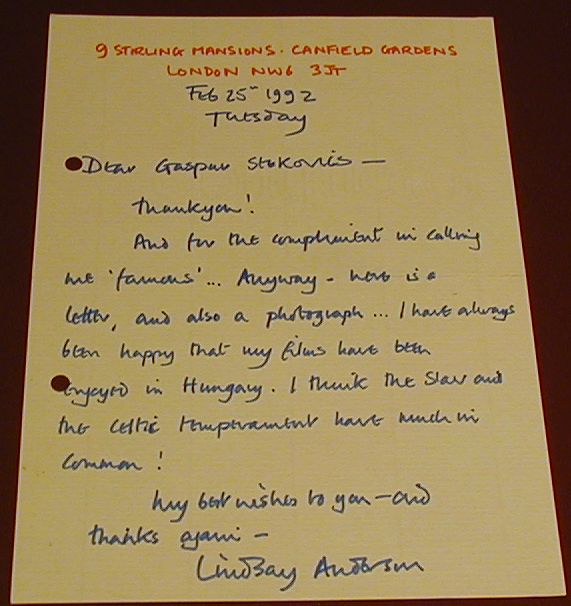 9 STIRLING MANSIONS · CANFIELD GARDENS
LONDON NW6 3JT
FEB 25th 1992
Tuesday
Dear Gaspar Stekovics —
Thankyou!
And for the compliment in calling
me 'famous'... Anyway – here is a
letter, and also a photograph ... I have always
been happy that my films have been
enjoyed in Hungary. I think the Slav and
the Celtic temperament have much in
common!
My best wishes to you – and
thanks again –
Lindsay Anderson